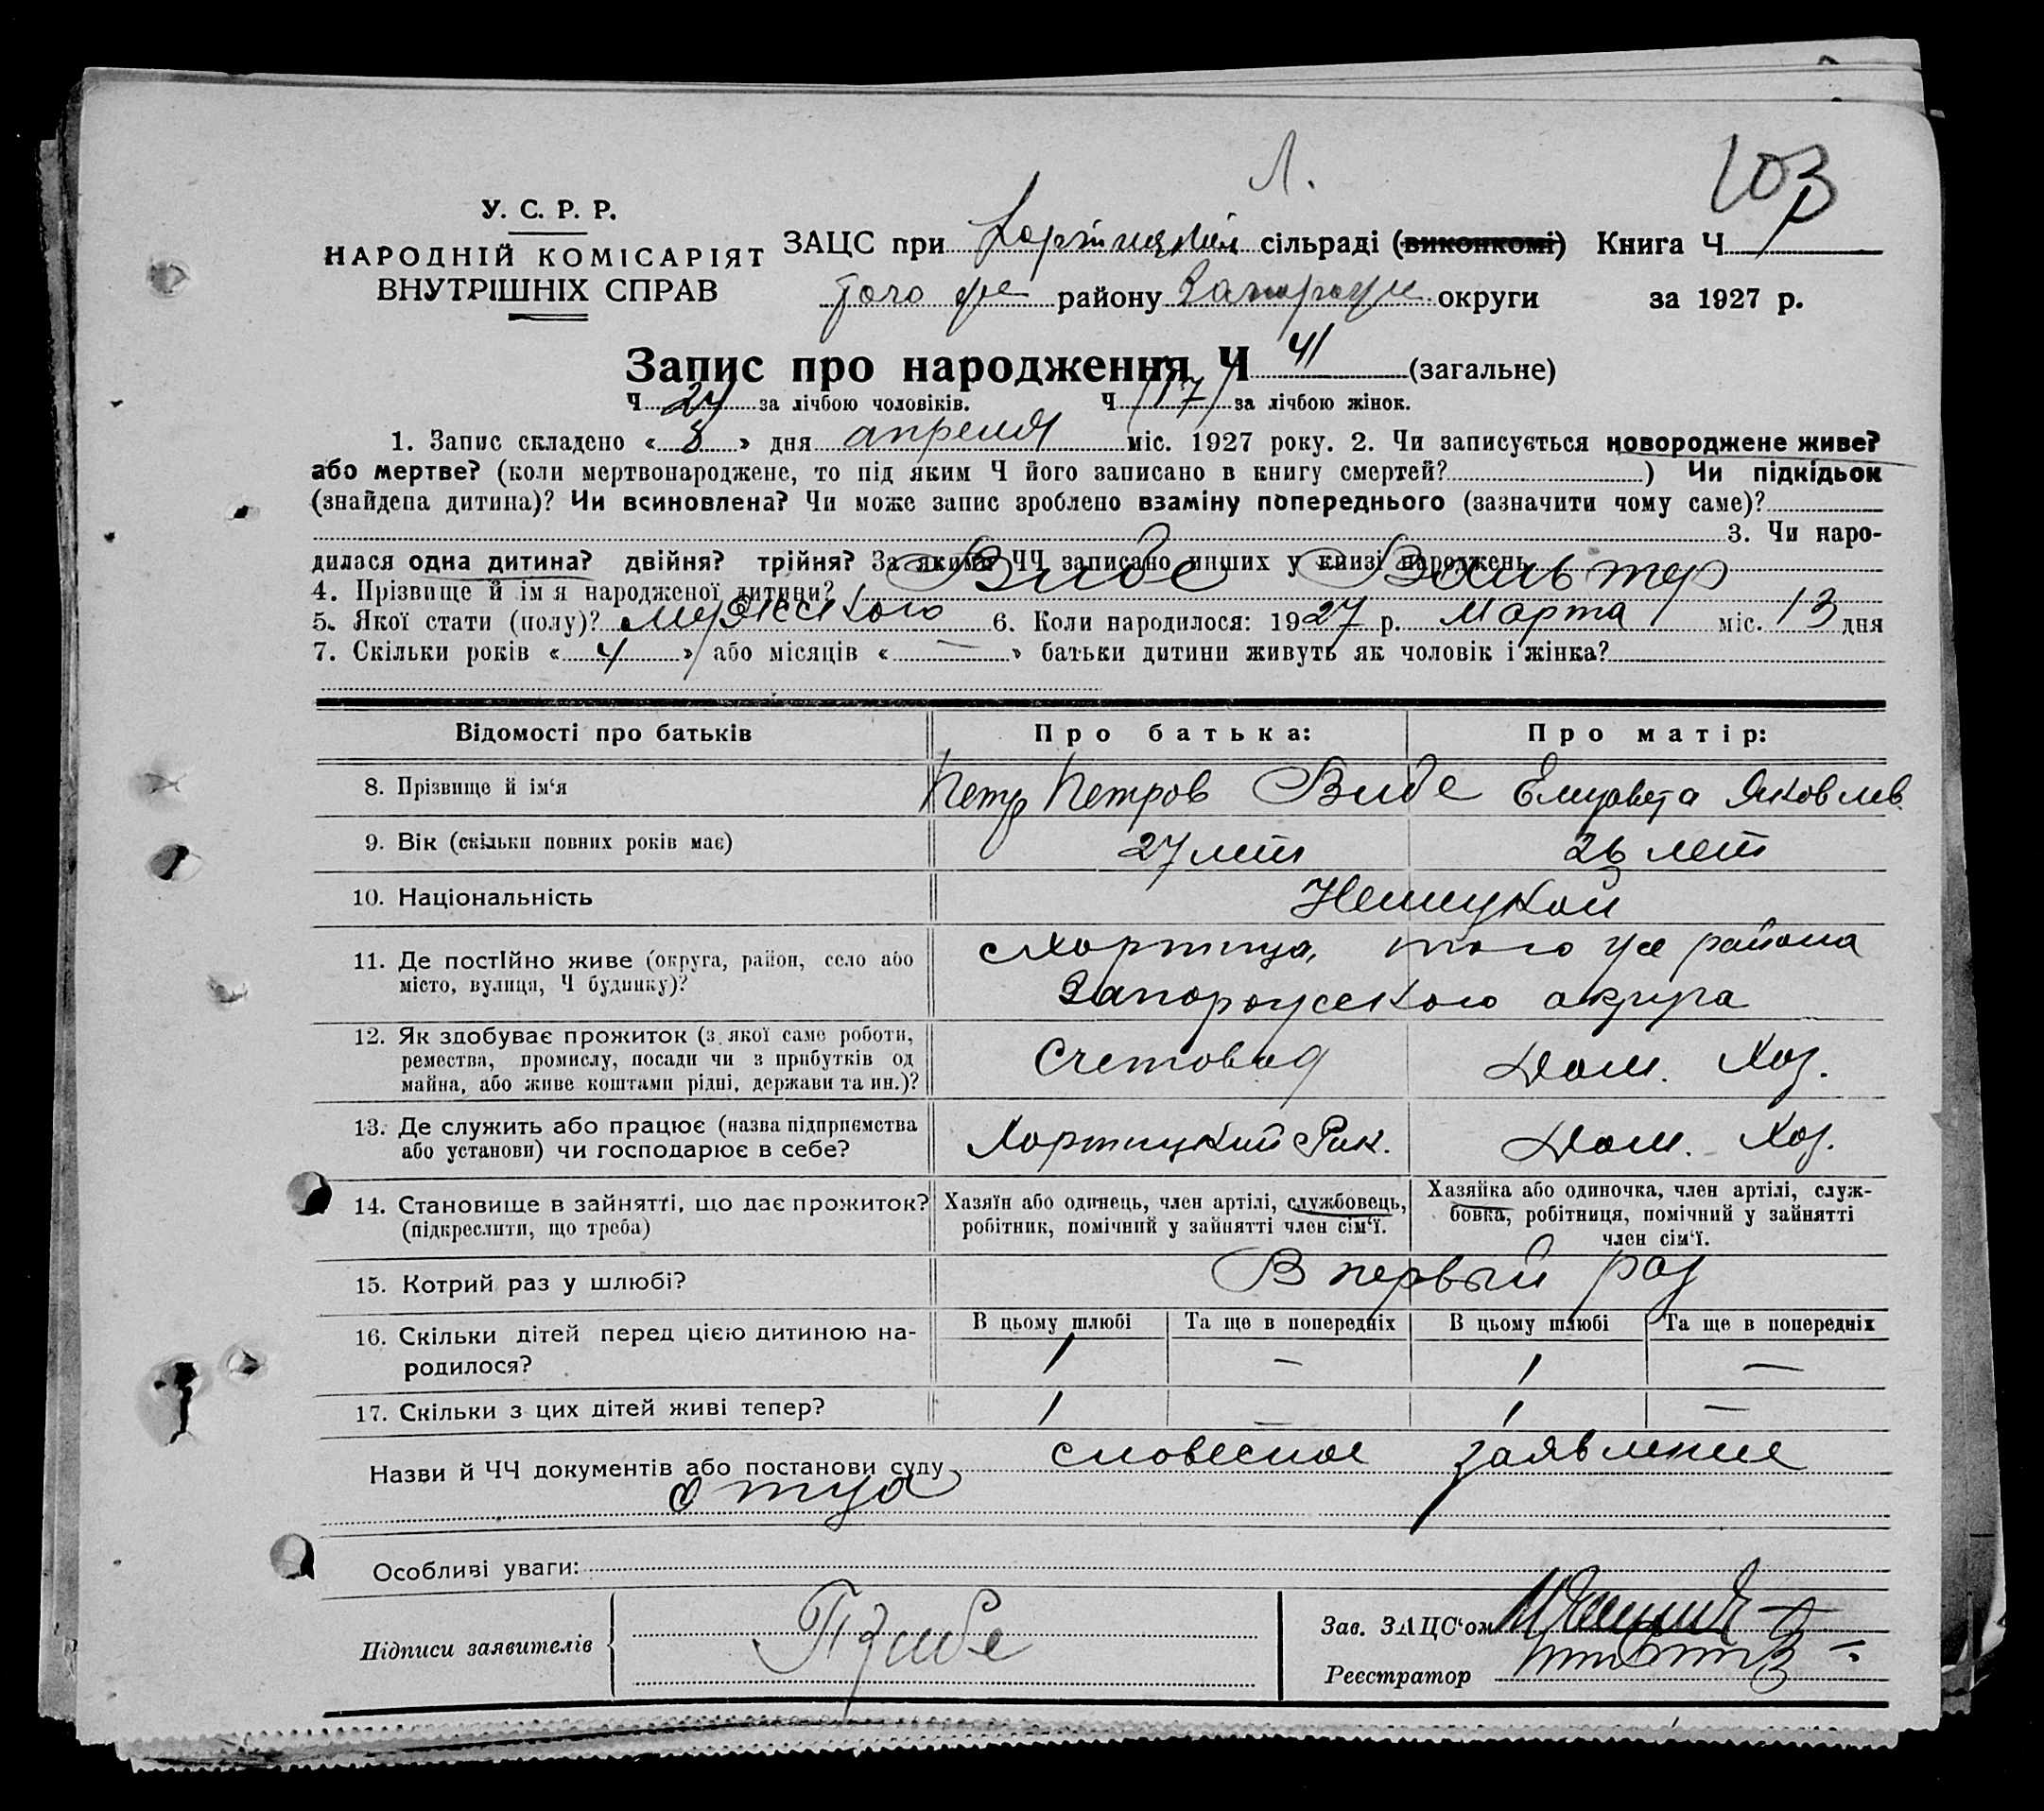 Л.
103
У. С. Р. Р.
НАРОДНІЙ КОМІСАРІЯТ
ВНУТРІШНІХ СПРАВ
ЗАЦС при Хортицкой сільраді (виконкомі) Книга Ч 1
того же району Запорожс округи за 1927 р.
Запис про народження Ч 41 (загальне)
Ч 24 за лічбою чоловіків. Ч (17) за лічбою жінок.
1. Запис складено « 8 » дня апреля міс. 1927 року. 2. Чи записується новороджене живе?
або мертве? (коли мертвонароджене, то під яким Ч його записано в книгу смертей? ) Чи підкідьок
(знайдена дитина)? Чи всиновлена? Чи може запис зроблено взаміну попереднього (зазначити чому саме)?
3. Чи наро-
дилася одна дитина? двійня? трійня? За якими ЧЧ записано инших у книзі народжень
4. Прізвище й ім я народженої дитини? Вибе Вальтер
5. Якої стати (полу)? мужского 6. Коли народилося: 1927 р. Марта міс. 13 дня
7. Скільки років « 4 » або місяців « — » батьки дитини живуть як чоловік і жінка?
Відомості про батьків Про батька: Про матір:
8. Прізвище й ім'я Петр Петров Вибе Елизавета Яковлев.
9. Вік (скільки повних років має) 27 лет 26 лет
10. Національність Немецкой
11. Де постійно живе (округа, район, село або Хортица, того же района
місто, вулиця, Ч будинку)? Запорожского округа
12. Як здобуває прожиток (з якої саме роботи,
ремества, промислу, посади чи з прибутків од Счетовод Дом. Хоз.
майна, або живе коштами рідні, держави та ин.)?
13. Де служить або працює (назва підприємства Хортицкий Рик. Дом. Хоз.
або установи) чи господарює в себе?
14. Становище в зайнятті, що дає прожиток? Хазяїн або одинець, член артілі, службовець, Хазяйка або одиночка, член артілі, служ-
(підкреслити, що треба) робітник, помічний у зайнятті член сім'ї. бовка, робітниця, помічний у зайнятті
член сім'ї.
15. Котрий раз у шлюбі? В первый раз
16. Скільки дітей перед цією дитиною на- В цьому шлюбі Та ще в попередніх В цьому шлюбі Та ще в попередніх
родилося? 1 — 1 —
17. Скільки з цих дітей живі тепер? 1 — 1 —
Назви й ЧЧ документів або постанови суду словесное заявление
отца
Особливі уваги:
Підписи заявителів
Зав. ЗАЦС'ом
Реєстратор